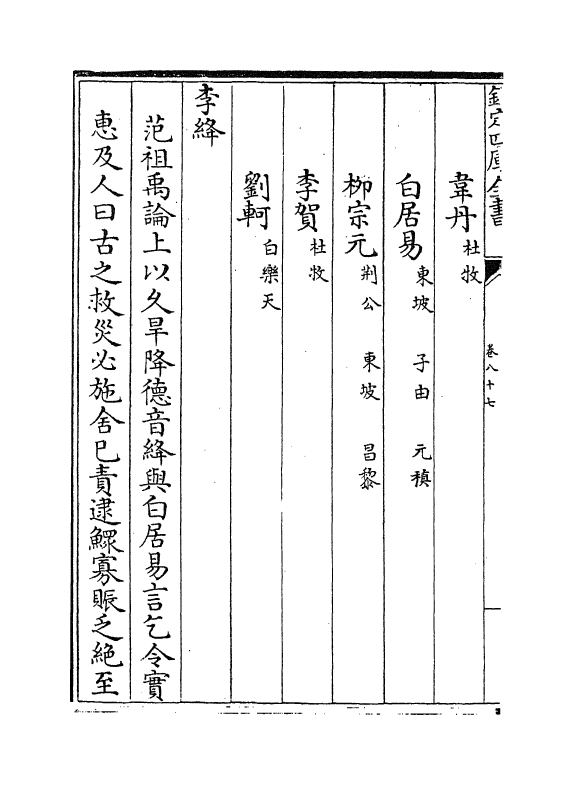 欽定四庫全書
卷八十七
韋丹 杜牧
白居易 東坡 子由 元稹
栁宗元 荆公 東坡 昌黎
李賀 杜牧
劉軻 白樂天
李絳
范祖禹論上以久旱降德音絳與白居易言乞令實
惠及人曰古之救災必施舍已責逮鰥寡賑乏絶至